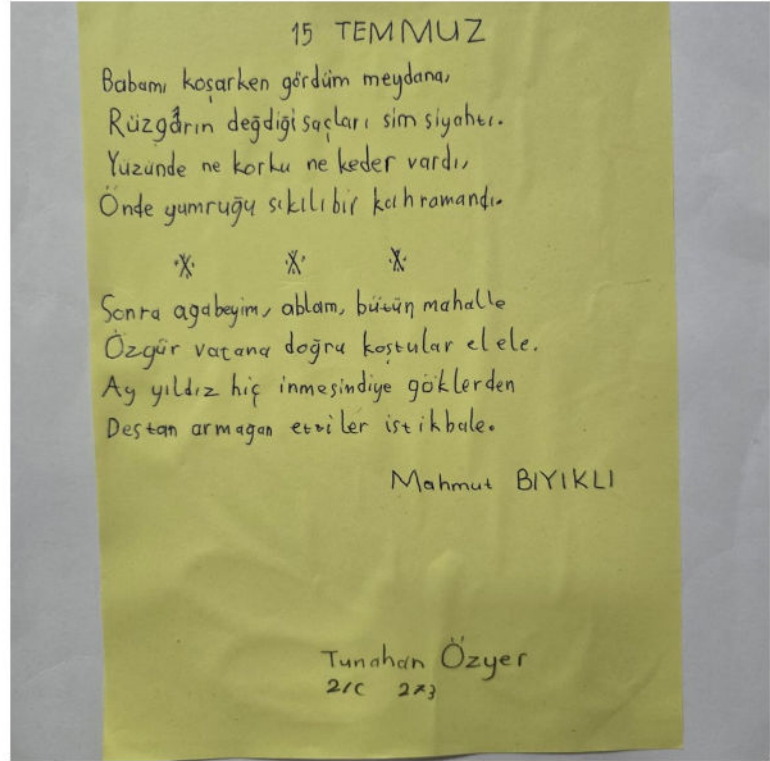 15 TEMMUZ
Babamı koşarken gördüm meydana,
Rüzgârın değdiği saçları sim siyahtı.
Yüzünde ne korku ne keder vardı,
Önde yumruğu sıkılı bir kahramandı.
Sonra agabeyim, ablam, bütün mahalle
Özgür vatana doğru koştular el ele.
Ay yıldız hiç inmesindiye göklerden
Destan armagan ettiler istikbale.
Mahmut BIYIKLI
Tunahan Özyer
2/C 273